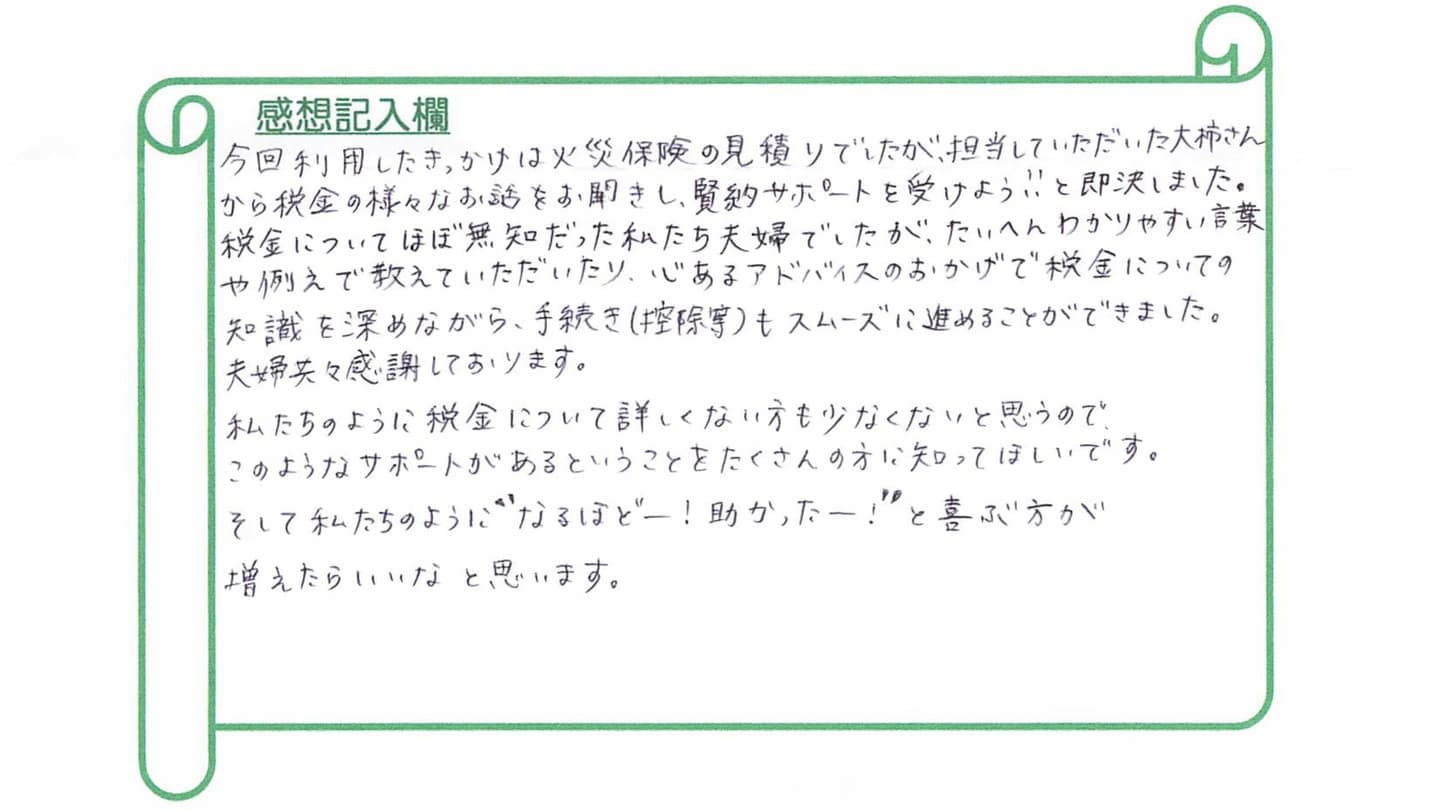 感想記入欄
今回利用したきっかけは火災保険の見積りでしたが、担当していただいた大柿さん
から税金の様々なお話をお聞きし、賢納サポートを受けよう!!と即決しました。
税金についてほぼ無知だった私たち夫婦でしたが、たいへんわかりやすい言葉
や例えで教えていただいたり、心あるアドバイスのおかげで税金についての
知識を深めながら、手続き(控除等)もスムーズに進めることができました。
夫婦共々感謝しております。
私たちのように税金について詳しくない方も少なくないと思うので、
このようなサポートがあるということをたくさんの方に知ってほしいです。
そして私たちのように"なるほどー!助かったー!"と喜ぶ方が
増えたらいいなと思います。